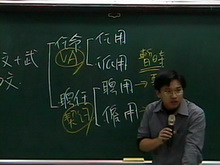 文+武
任命
任用
VA
派用
暫時
文
聘任
聘用
契約
僱用